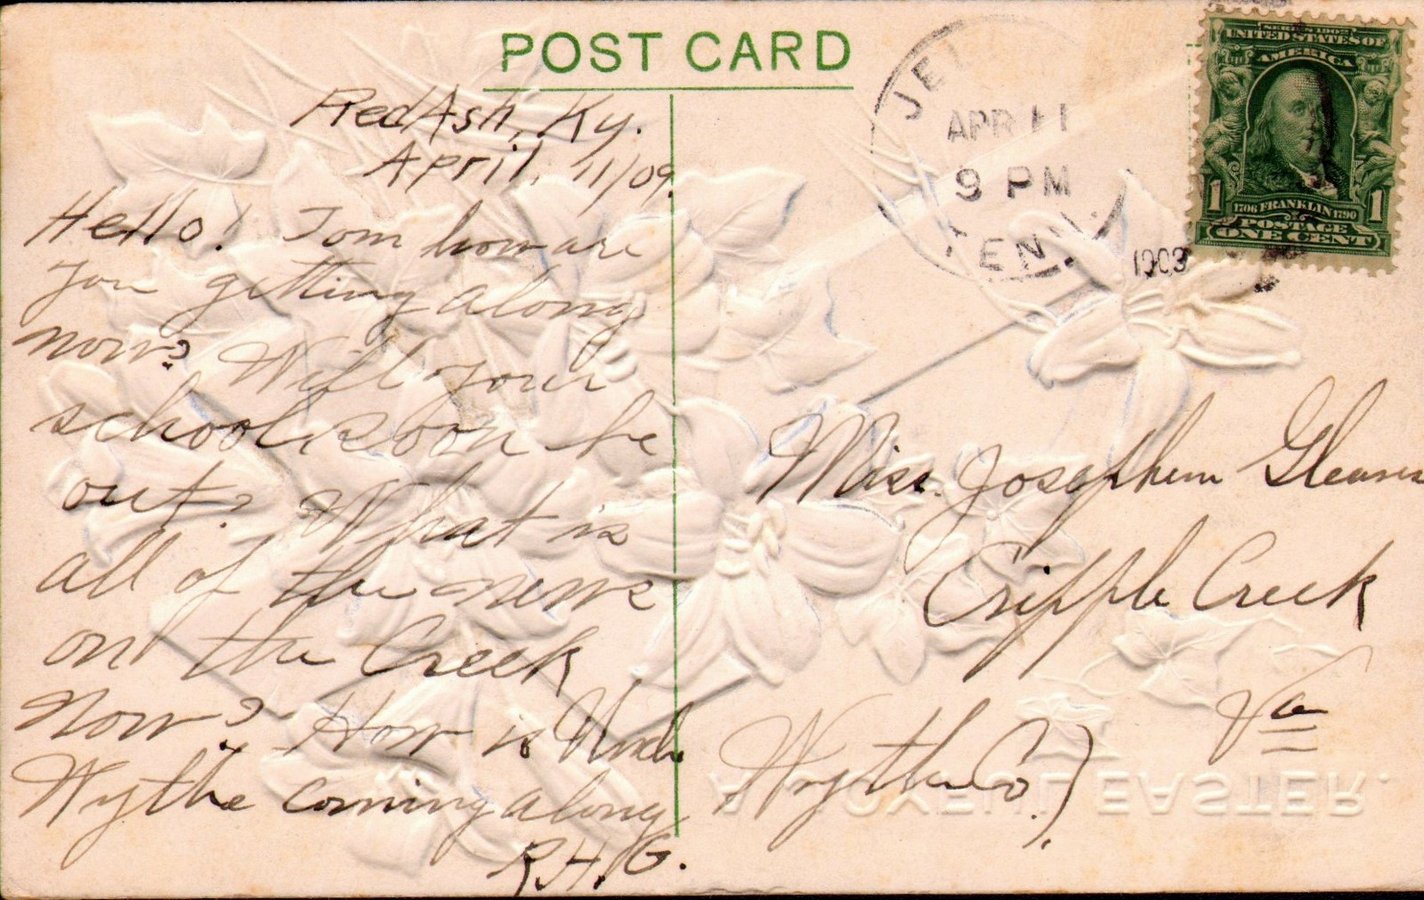 POST CARD
Red Ash, Ky.
April, 11/09.
Hello! Tom how are
you getting along
now? Will your
school soon be
out? What is
all of the news
on the Creek
Now? How is
Wythe coming along
R.H.G.
APR 11
9 PM
TENN
SERIES 1902
UNITED STATES OF
AMERICA
1 1
1706 FRANKLIN 1790
POSTAGE
ONE CENT
Miss. Josephine
Cripple Creek
Wythe Co.) Va
A JOYFUL EASTER.